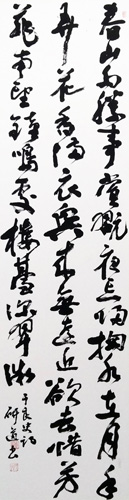 春山多勝事賞翫夜忘歸掬水在月手
弄花香滿衣興來無遠近欲去惜芳
菲南望鐘鳴處樓臺深翠微
于良史詩